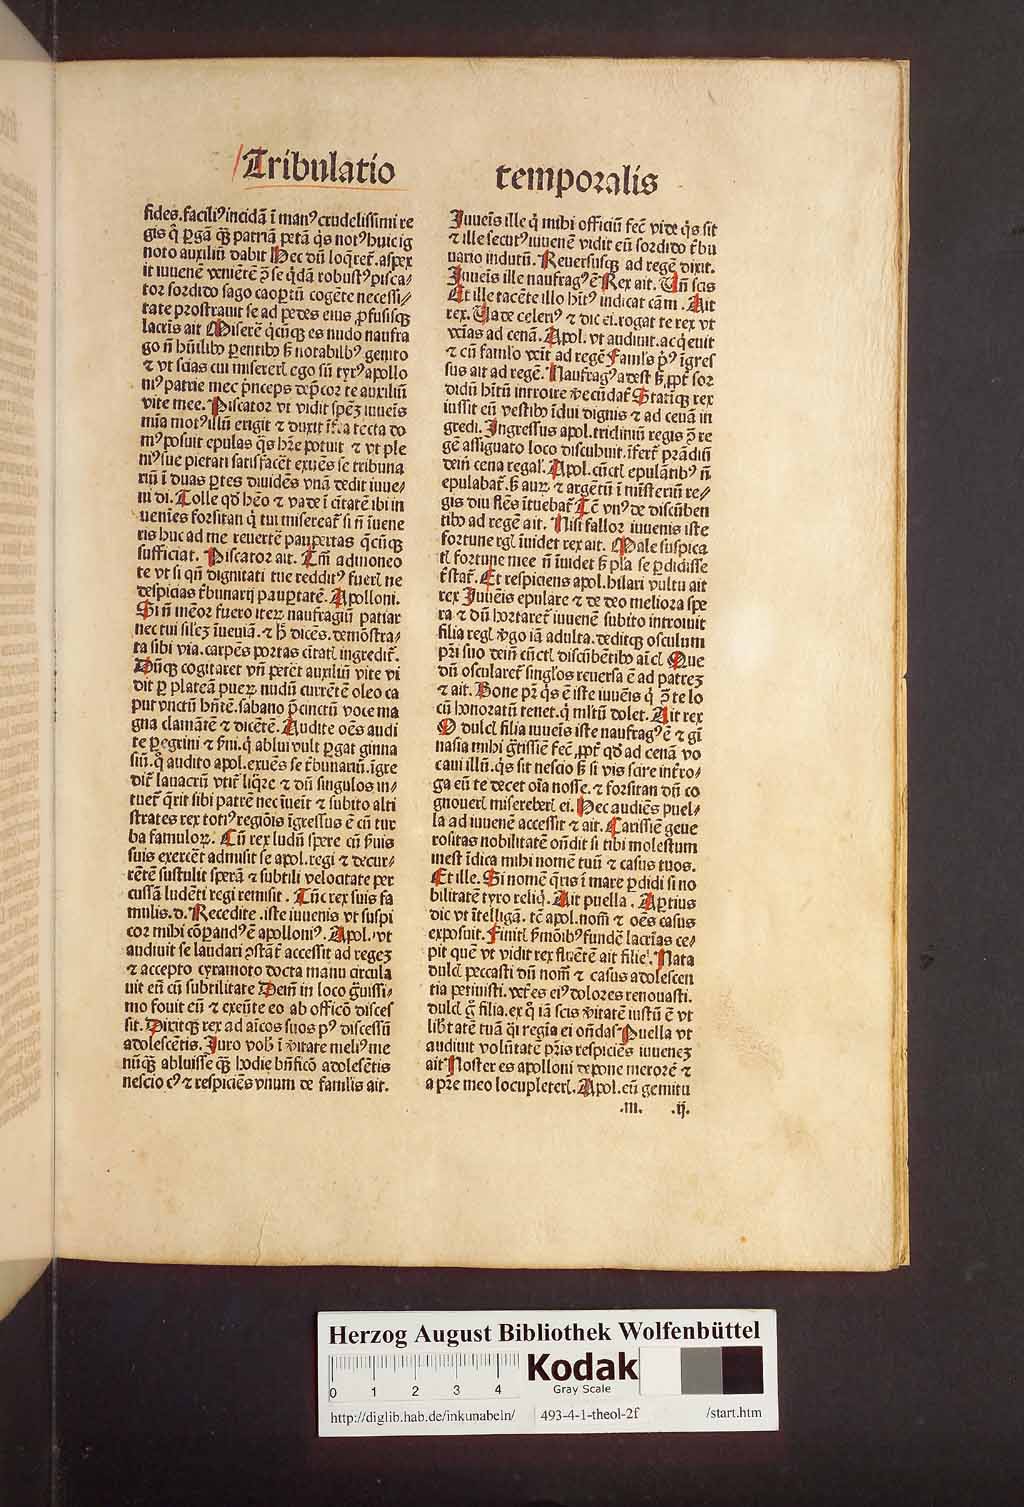 Tribulatio temporalis
fides. faciliꝰ incidā ī manꝰ crudelissimi re
gis q̄ ꝑgā q̄ꝫ patriā petā q̄s notꝰ huic ig
noto auxiliū dabit Hec dū loq̄ret᷑. aspex
it iuuenē veniētē ꝓ se q̄dā robustꝰ pisca⸗
tor sordido sago caoꝑtū cogēte necessi⸗
tate prostrauit se ad pedes eius ꝓfusisqꝫ
lacr̄is ait Miserē q̄cūqꝫ es nudo naufra
go n̄ hūilibꝰ ꝑentibꝰ sꝫ notabilibꝰ genito
⁊ vt scias cui misereri ego sū tyrꝰ apollo
niꝰ patrie mee p̄nceps dep̄cor te auxiliū
vite mee. Piscator vt vidit spēꝫ iuuēis
mīa motꝰ illū erigit ⁊ duxit īfra tecta do
mꝰ posuit epulas q̄s hr̄e potuit ⁊ vt ple
niꝰ sue pietati satisfacēt exuēs se tribuna
riū ī duas ꝑtes diuidēs vnā dedit iuue⸗
ni di. Tolle qd̄ hēo ⁊ vade ī citatē ibi in
uenies forsitan q̄ tui misereat᷑ si n̄ īuene
ris huc ad me reuertē paupertas q̄cūqꝫ
sufficiat. Piscator ait. Tm̄ admoneo
te vt si qn̄ dignitati tue redditꝰ fueris ne
despicias t᷑bunarij pauꝑtatē. Apolloni.
Si n̄ mēor fuero iteꝝ naufragiū patiar
nec tui silem īueniā. ⁊ h̄ dicēs. demōstra⸗
ta sibi via. carpēs portas citatis ingredit᷑.
Dūqꝫ cogitaret vn̄ petēt auxiliū vite vi
dit ꝑ plateā pueꝝ nudū currētē oleo ca
put vnctū hn̄tē. sabano p̄cinctū voce ma
gna clamātē ⁊ dicētē. Audite oēs audi
te ꝑegrini ⁊ ẜui. q̄ ablui vult ꝑgat gimna
siū. q̄ audito apol. exuēs se t᷑bunariū. īgre
dit᷑ lauacrū vtit᷑ liq̄re ⁊ dū singulos in⸗
tuet᷑ q̄rit sibi patrē nec īuēit ⁊ subito alti
strates rex totiꝰ regiōis īgressus ē cū tur
ba famuloꝝ. Cū rex ludū spere cū ẜuis
suis exercēt admisit se apol. regi ⁊ decur⸗
rētē sustulit sperā ⁊ subtili velocitate per
cussā ludēti regi remisit. Tūc rex suis fa
mulis. d. Recedite. iste iuuenis vt suspi
cor mihi cōꝑandꝰ ē apolloniꝰ. Apol. vt
audiuit se laudari ꝯstāt᷑ accessit ad regeꝫ
⁊ accepto cyramoto docta manu circula
uit eū cū subtilitate Dein in loco q̄uissi⸗
mo fouit eū ⁊ exeūte eo ab officō disces
sit. Dixitqꝫ rex ad aīcos suos pꝰ discessū
adolescētis. Juro vob̄ ī v̄itate meliꝰ me
nūqꝫ abluisse qꝫ hodie bn̄ficō adolesētis
nescio cꝰ ⁊ respiciēs vnum de famulis ait.
Juuēis ille q̄ mihi officiū fec̄ vide q̄s sit
⁊ ille secutꝰ iuuenē vidit eū sordido t᷑bu
nario indutū. Reuersusqꝫ ad regē dixit.
Juuēis ille naufragꝰ ē Rex ait. Vn̄ scis
Et ille tacēte illo hītꝰ indicat cām. Ait
rex. Vade celeriꝰ ⁊ dic ei. rogat te rex vt
veīas ad cenā. Apol. vt audiuit. acq̄euit
⁊ cū famlo veīt ad regē Famls pꝰ īgres
sus ait ad regē. Naufragꝰ adest sꝫ ꝓpt᷑ sor
didū hītū introire verecūdat᷑ Statīqꝫ rex
iussit eū vestibꝰ īdui dignis ⁊ ad cenā in
gredi. Ingressus apol. tricliniū regis ꝓ re
gē assignato loco discubuit. īfert᷑ prādiū
dein̄ cena regal̓. Apol. cūctis epulātibꝰ n̄
epulabat᷑. sꝫ auꝝ ⁊ argētū ī mīsteriū re⸗
gis diu flēs ītuebat᷑ Tē vnꝰ de discūben
tibꝰ ad regē ait. Nisi fallor iuuenis iste
fortune regis īuidet rex ait. Male suspica
tis fortune mee n̄ īuidet sꝫ pl̄a se ꝑdidisse
t᷑stat᷑. Et respiciens apol. hilari vultu ait
rex Juuēis epulare ⁊ de deo meliora spe
ra ⁊ dū hortaret᷑ iuuenē subito introiuit
filia regis v̄go iā adulta. deditqꝫ osculum
pr̄i suo dein̄ cūctis discūbētibꝰ aīcis Que
dū oscularet᷑ singlos reuersa ē ad patreꝫ
⁊ ait. Bone pr̄ q̄s ē iste iuuēis q̄ ꝓ te lo
cū honoratū tenet. q̄ ml̄tū dolet. Ait rex
O dulcis filia iuuēis iste naufragꝰ ē ⁊ gī
nasia mihi gr̄tissiē fec̄. ꝓpt᷑ qd̄ ad cenā vo
caui illū. q̄s sit nescio sꝫ si vis scire int᷑ro⸗
ga eū te decet oīa nosse. ⁊ forsitan dū co
gnoueris misereberis ei. Hec audiēs puel⸗
la ad iuuenē accessit ⁊ ait. Carissiē gene
rositas nobilitatē on̄dit si tibi molestum
inest īdica mihi nomē tuū ⁊ casus tuos.
Et ille. Si nomē q̄ris ī mare ꝑdidi si no
bilitatē tyro reliq̄. Ait puella. Aꝑtius
dic vt ītelligā. tē apol. nom̄ ⁊ oēs casus
exposuit. Finitis ẜmōibꝰ fundē lacrīas ce⸗
pit quē vt vidit rex fluētē ait filie. Nata
dulcis peccasti dū nom̄ ⁊ casus adolescen
tia petiuisti. vet᷑es eiꝰ dolores renouasti.
dulcis q̄ filia. ex q̄ iā scis v̄itatē iustū ē vt
lib᷑tatē tuā q̄i regīa ei on̄das Puella vt
audiuit volūtatē pr̄is respiciēs iuueneꝫ
ait Noster es apolloni depone merorē ⁊
a pr̄e meo locupleteris. Apol. cū gemitu
.m. .ij.
Herzog August Bibliothek Wolfenbüttel
0 1 2 3 4
Kodak
Gray Scale
http://diglib.hab.de/inkunabeln/ 493-4-1-theol-2f /start.htm